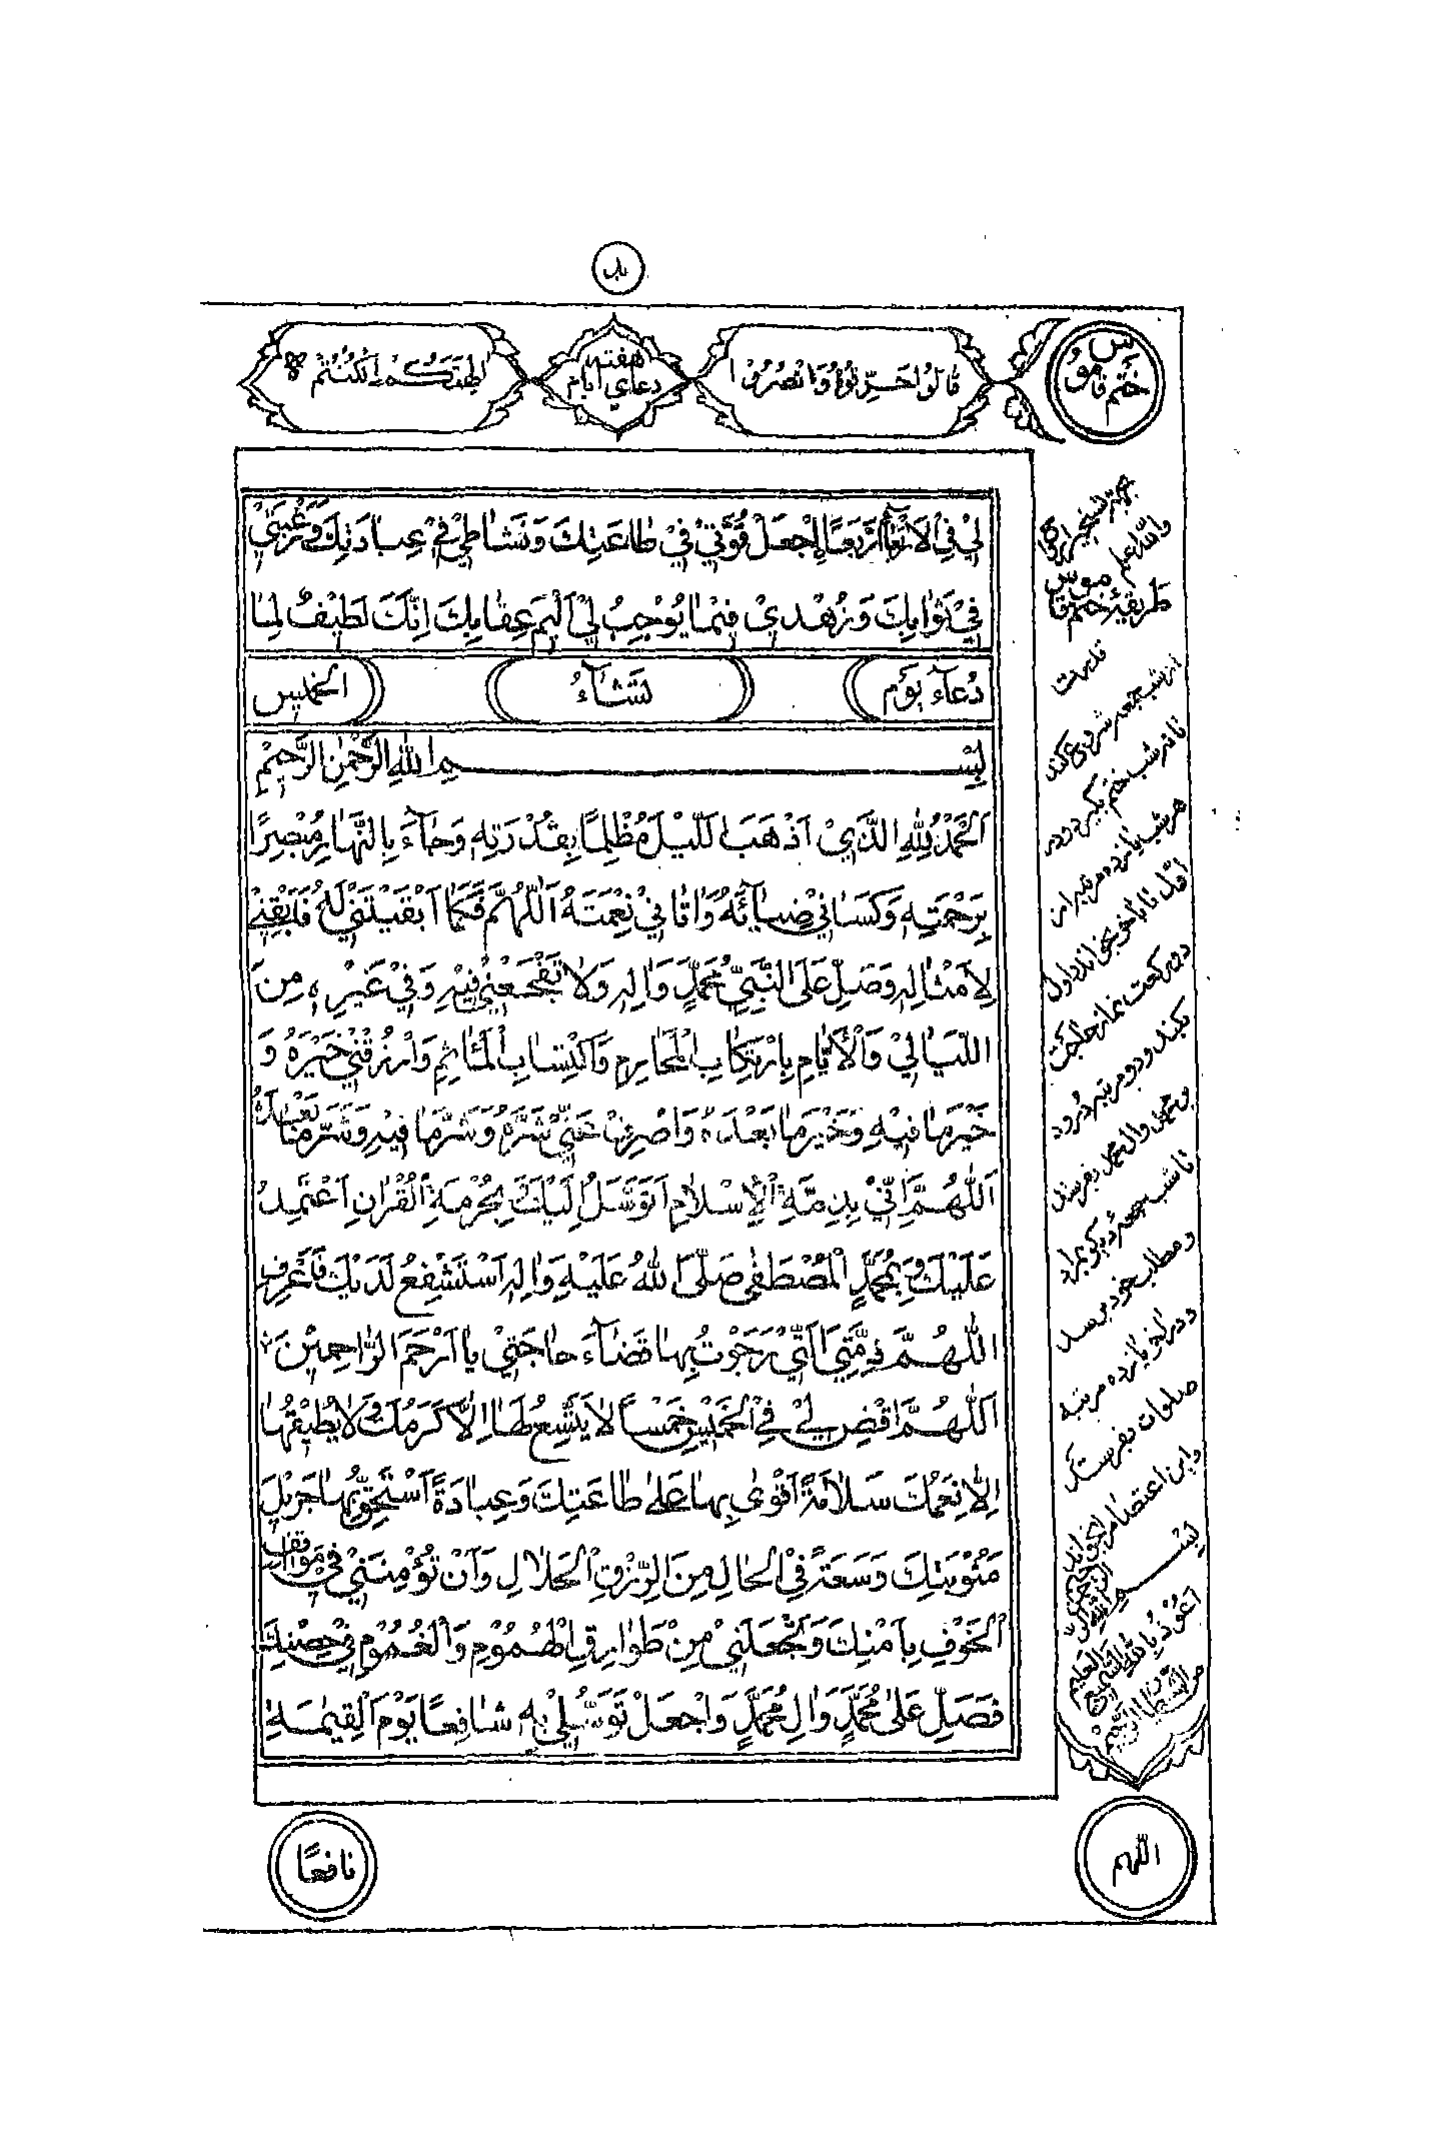 قَالُوا حَرِّقُوهُ وَانْصُرُوا
هفته
دعای ایام
اٰلِهَتَكُمْ اِنْ كُنْتُمْ
ختم قاموس
لِيْ فِي الْاَرْبَعَآءِ اَرْبَعًا اِجْعَلْ قُوَّتِيْ فِيْ طَاعَتِكَ وَنَشَاطِيْ فِيْ عِبَادَتِكَ وَرَغْبَتِيْ
فِيْ ثَوَابِكَ وَزُهْدِيْ فِيْمَا يُوْجِبُ لِيْ اَلِيْمَ عِقَابِكَ اِنَّكَ لَطِيْفٌ لِمَا
دُعَآءِ يَوْمِ تَشَآءُ الخمیس
بِسْمِ اللهِ الرَّحْمٰنِ الرَّحِيْمِ
اَلْحَمْدُ لِلّٰهِ الَّذِيْ اَذْهَبَ اللَّيْلَ مُظْلِمًا بِقُدْرَتِهٖ وَجَآءَ بِالنَّهَارِ مُبْصِرًا
بِرَحْمَتِهٖ وَكَسَانِيْ ضِيَآئَهُ وَاٰتَانِيْ نِعْمَتَهُ اَللّٰهُمَّ فَكَمَا اَبْقَيْتَنِيْ لَهُ فَاَبْقِنِيْ
لِاَمْثَالِهٖ وَصَلِّ عَلَى النَّبِيِّ مُحَمَّدٍ وَاٰلِهٖ وَلَا تَفْجَعْنِيْ فِيْهِ وَفِيْ غَيْرِهٖ مِنَ
اللَّيَالِيْ وَالْاَيَّامِ بِارْتِكَابِ الْمَحَارِمِ وَاكْتِسَابِ الْمَاٰثِمِ وَارْزُقْنِيْ خَيْرَهُ وَ
خَيْرَ مَا فِيْهِ وَخَيْرَ مَا بَعْدَهُ وَاصْرِفْ عَنِّيْ شَرَّهُ وَشَرَّ مَا فِيْهِ وَشَرَّ مَا بَعْدَهُ
اَللّٰهُمَّ اِنِّيْ بِذِمَّةِ الْاِسْلَامِ اَتَوَسَّلُ اِلَيْكَ وَبِحُرْمَةِ الْقُرْاٰنِ اَعْتَمِدُ
عَلَيْكَ وَبِمُحَمَّدٍ الْمُصْطَفٰى صَلَّى اللهُ عَلَيْهِ وَاٰلِهٖ اَسْتَشْفِعُ لَدَيْكَ فَاعْرِفِ
اللّٰهُمَّ ذِمَّتِيَ الَّتِيْ رَجَوْتُ بِهَا قَضَآءَ حَاجَتِيْ يَا اَرْحَمَ الرَّاحِمِيْنَ
اَللّٰهُمَّ اقْضِ لِيْ فِي الْخَمِيْسِ خَمْسًا لَا يَتَّسِعُ لَهَا اِلَّا كَرَمُكَ وَلَا يُطِيْقُهَا
اِلَّا نِعَمُكَ سَلَامَةً اَقْوٰى بِهَا عَلٰى طَاعَتِكَ وَعِبَادَةً اَسْتَحِقُّ بِهَا جَزِيْلَ
مَثُوْبَتِكَ وَسَعَةً فِي الْحَالِ مِنَ الرِّزْقِ الْحَلَالِ وَاَنْ تُؤْمِنَنِيْ فِيْ مَوَاقِفِ
الْخَوْفِ بِاَمْنِكَ وَتَجْعَلَنِيْ مِنْ طَوَارِقِ الْهُمُوْمِ وَالْغُمُوْمِ فِيْ حِصْنِكَ
فَصَلِّ عَلٰى مُحَمَّدٍ وَاٰلِ مُحَمَّدٍ وَاجْعَلْ تَوَسُّلِيْ بِهٖ شَافِعًا يَوْمَ الْقِيٰمَةِ
والله اعلم
طریقهٔ ختم قاموس
قدرت
از شب جمعه شروع کند
تا نه شب ختم بگیرد و در
هر شب یازده مرتبه از
اوّل تا بآخر بخواند و اول
دو رکعت نماز حاجت
بکند و دو مرتبه درود
بر محمد و آل محمد بفرستد
تا شب جمعهٔ دیگر
و مطالب خود برسد
و در آخر یازده مرتبه
صلوات بفرستد
و این اعتصام را بخواند
بِسْمِ اللهِ الرَّحْمٰنِ الرَّحِيْمِ
اَعُوْذُ بِاللهِ السَّمِيْعِ الْعَلِيْمِ
مِنَ الشَّيْطَانِ الرَّجِيْمِ
نَافِعًا
اللهم